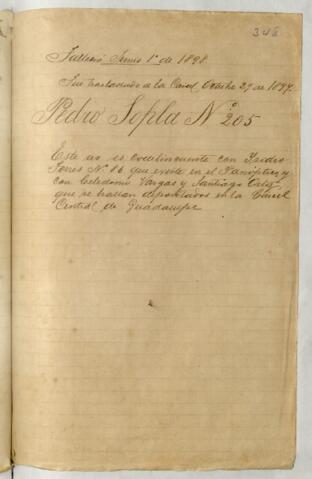 348
Falleció Junio 1º de 1898.
Fué trasladado de la Carcel Octubre 27 de 1897.
Pedro Sopla Nº 205
Este reo es codelincuente con Isidro
Torres Nº 86 que existe en el Panóptico, y
con Celedonio Vargas y Santiago
que se hallan depositados en la Carcel
Central de Guadalupe